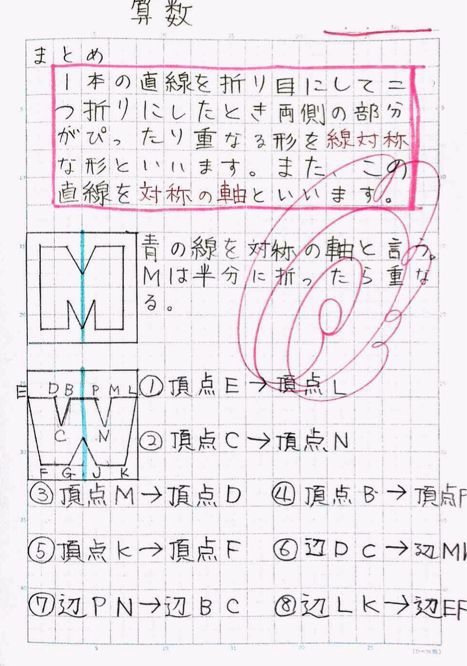 算数
まとめ
1本の直線を折り目にして二
つ折りにしたとき両側の部分
がぴったり重なる形を線対称
な形といいます。また、この
直線を対称の軸といいます。
青の線を対称の軸と言う。
Mは半分に折ったら重な
る。
E D B P M L
C N
F G J K
①頂点E→頂点L
②頂点C→頂点N
③頂点M→頂点D ④頂点B→頂点P
⑤頂点K→頂点F ⑥辺DC→辺MN
⑦辺PN→辺BC ⑧辺LK→辺EF